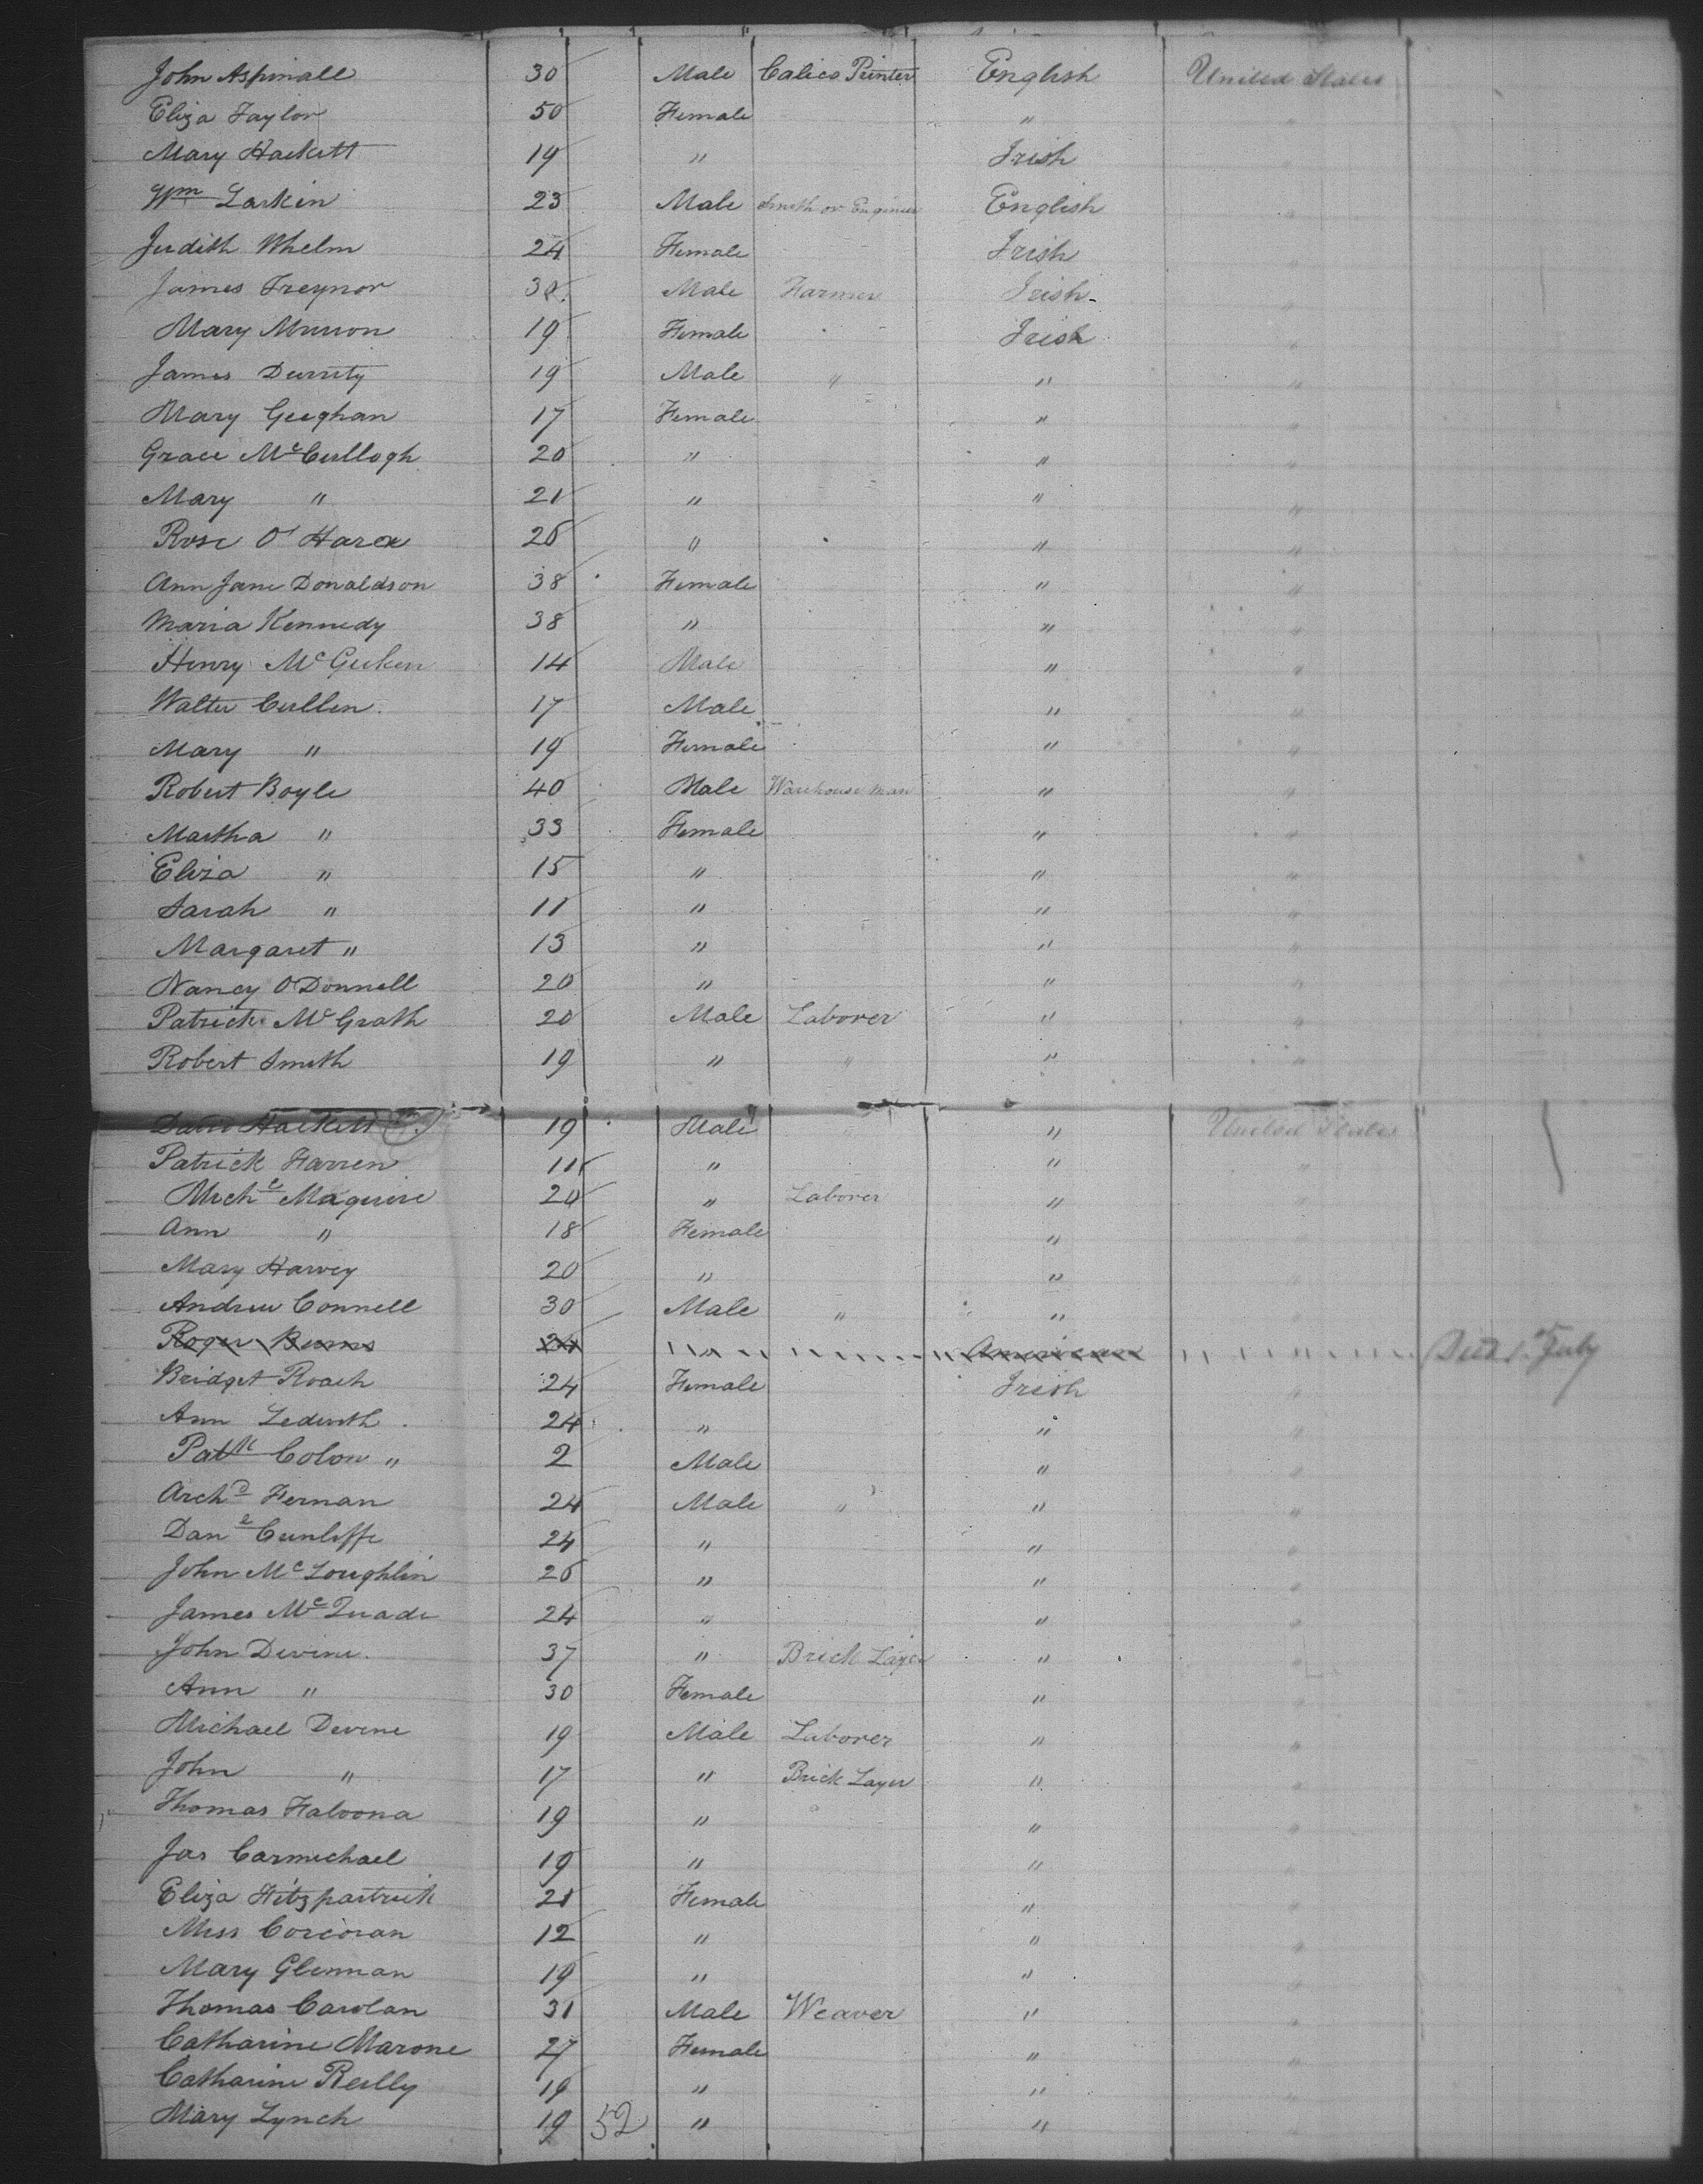 John Aspinall 30 Male Calico Printer English United States
Eliza Taylor 50 Female " "
Mary Hackett 19 " Irish "
Wm Larkin 23 Male Smith or Engineer English "
Judith Whelm 24 Female Irish "
James Treynor 30. Male Farmer Irish- "
Mary Murron 19 Female Irish "
James Durrity 19 Male " " "
Mary Geeghan 17 Female " "
Grace McCullogh 20 " " "
Mary " 21 " " "
Rose O'Hara 26 " " "
Ann Jane Donaldson 38 Female " "
Maria Kennedy 38 " " "
Henry McGuken 14 Male " "
Walter Cullen. 17 Male " "
Mary " 19 Female " "
Robert Boyle 40 Male Warehouse man " "
Martha " 33 Female " "
Eliza " 15 " " "
Sarah " 11 " " "
Margaret " 13 " " "
Nancy O'Donnell 20 " " "
Patrick McGrath 20 Male Laborer " "
Robert Smith 19 " " " "
Hackett 19 Male " " United States
Patrick Farren 11 " " "
Michl Maguire 20 " Laborer " "
Ann " 18 Female " "
Mary Harvey 20 " " "
Andrew Connell 30 Male " " "
Roger Burns 24 " American " Died 1st July
Bridget Roach 24 Female Irish "
Ann Ledwith 24 " " "
Patk Colow " 2 Male " "
Archd Fernan 24 Male " " "
Danl Cunliffe 24 " " "
John McLoughlin 26 " " "
James McQuade 24 " " "
John Devine. 37 " Brick Layer " "
Ann " 30 Female " "
Michael Devine 19 Male Laborer " "
John " 17 " Brick Layer " "
Thomas Faloona 19 " " "
Jas Carmichael 19 " " "
Eliza Fitzpartrick 21 Female " "
Miss Corcoran 12 " " "
Mary Glennan 19 " " "
Thomas Carolan 31 Male Weaver " "
Catharine Marone 27 Female " "
Catharine Reilly 19 " " "
Mary Lynch 19 52 " " "